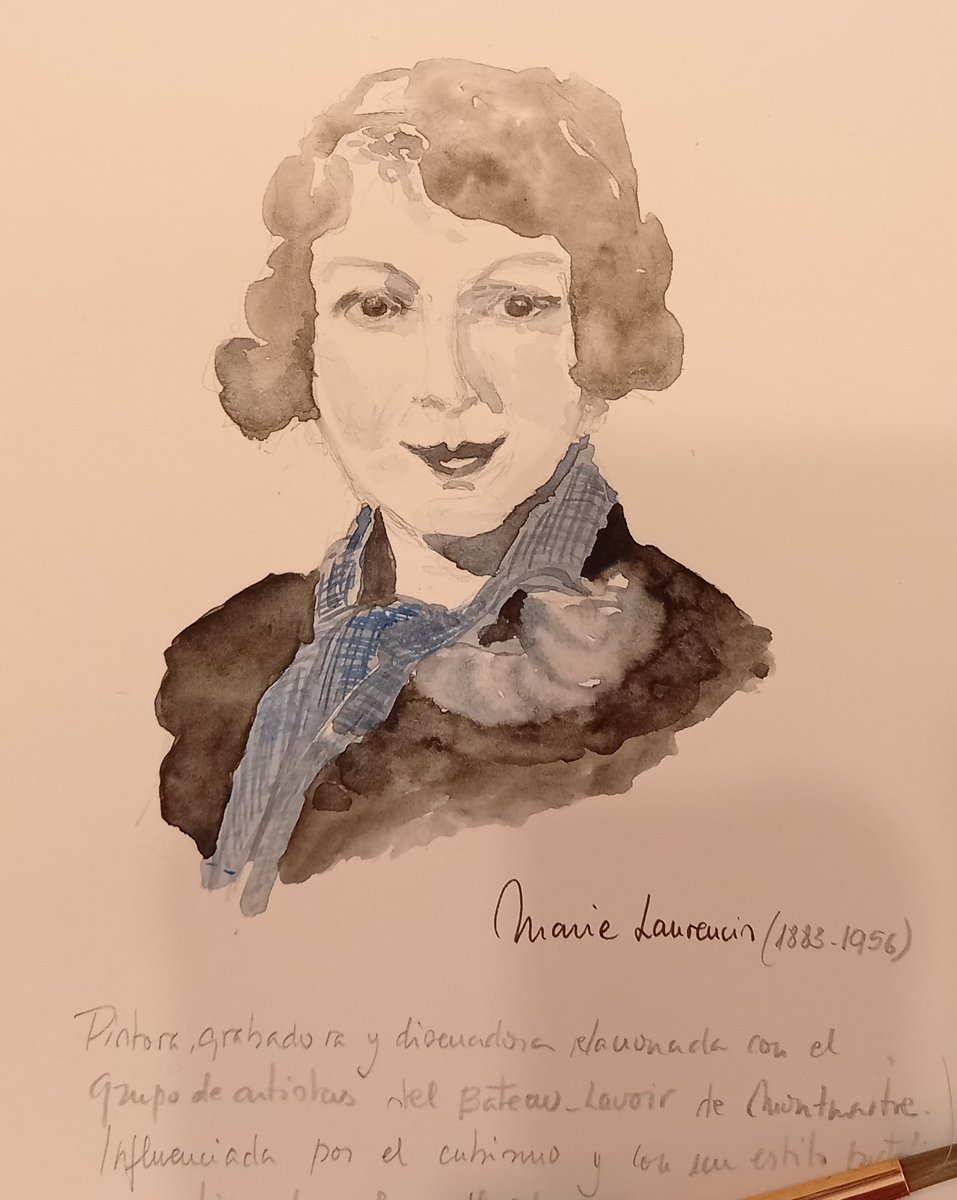 Marie Laurencin (1883-1956)
Pintora, grabadora y diseñadora relacionada con el
grupo de artistas del Bateau-Lavoir de Montmartre.
Influenciada por el cubismo y con un estilo